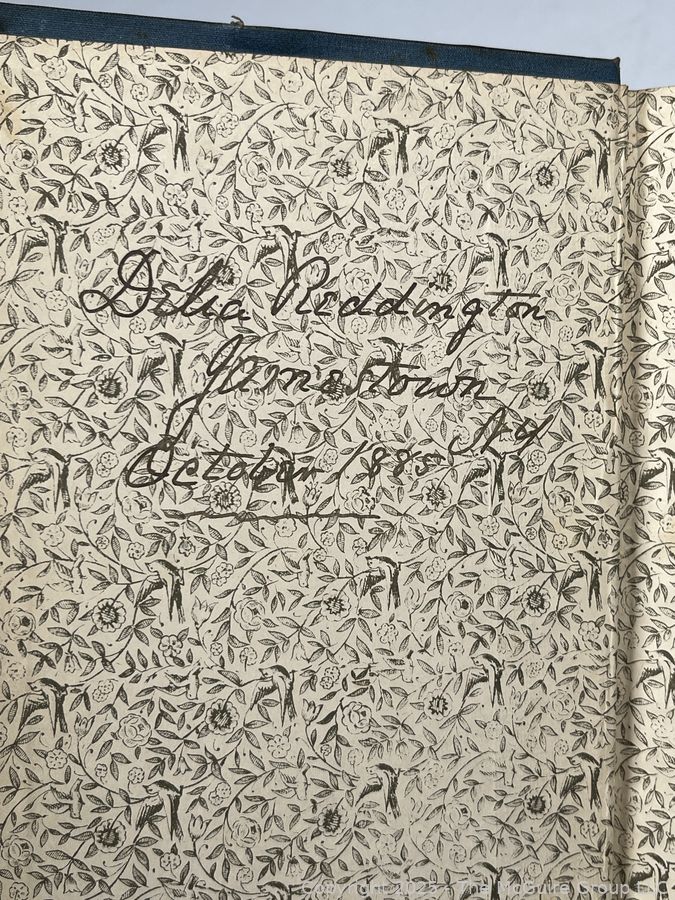 Delia Reddington
Jamestown
NY
October 1885
Copyright 2025 - The McGuire Group LLC